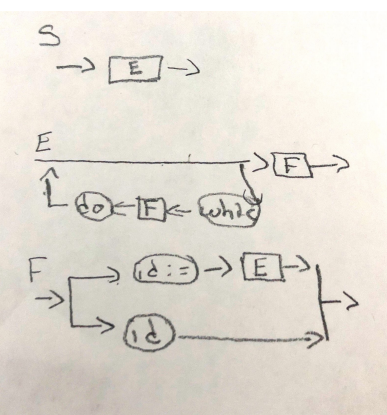 S
E
E
F
do F while
F
id := E
id